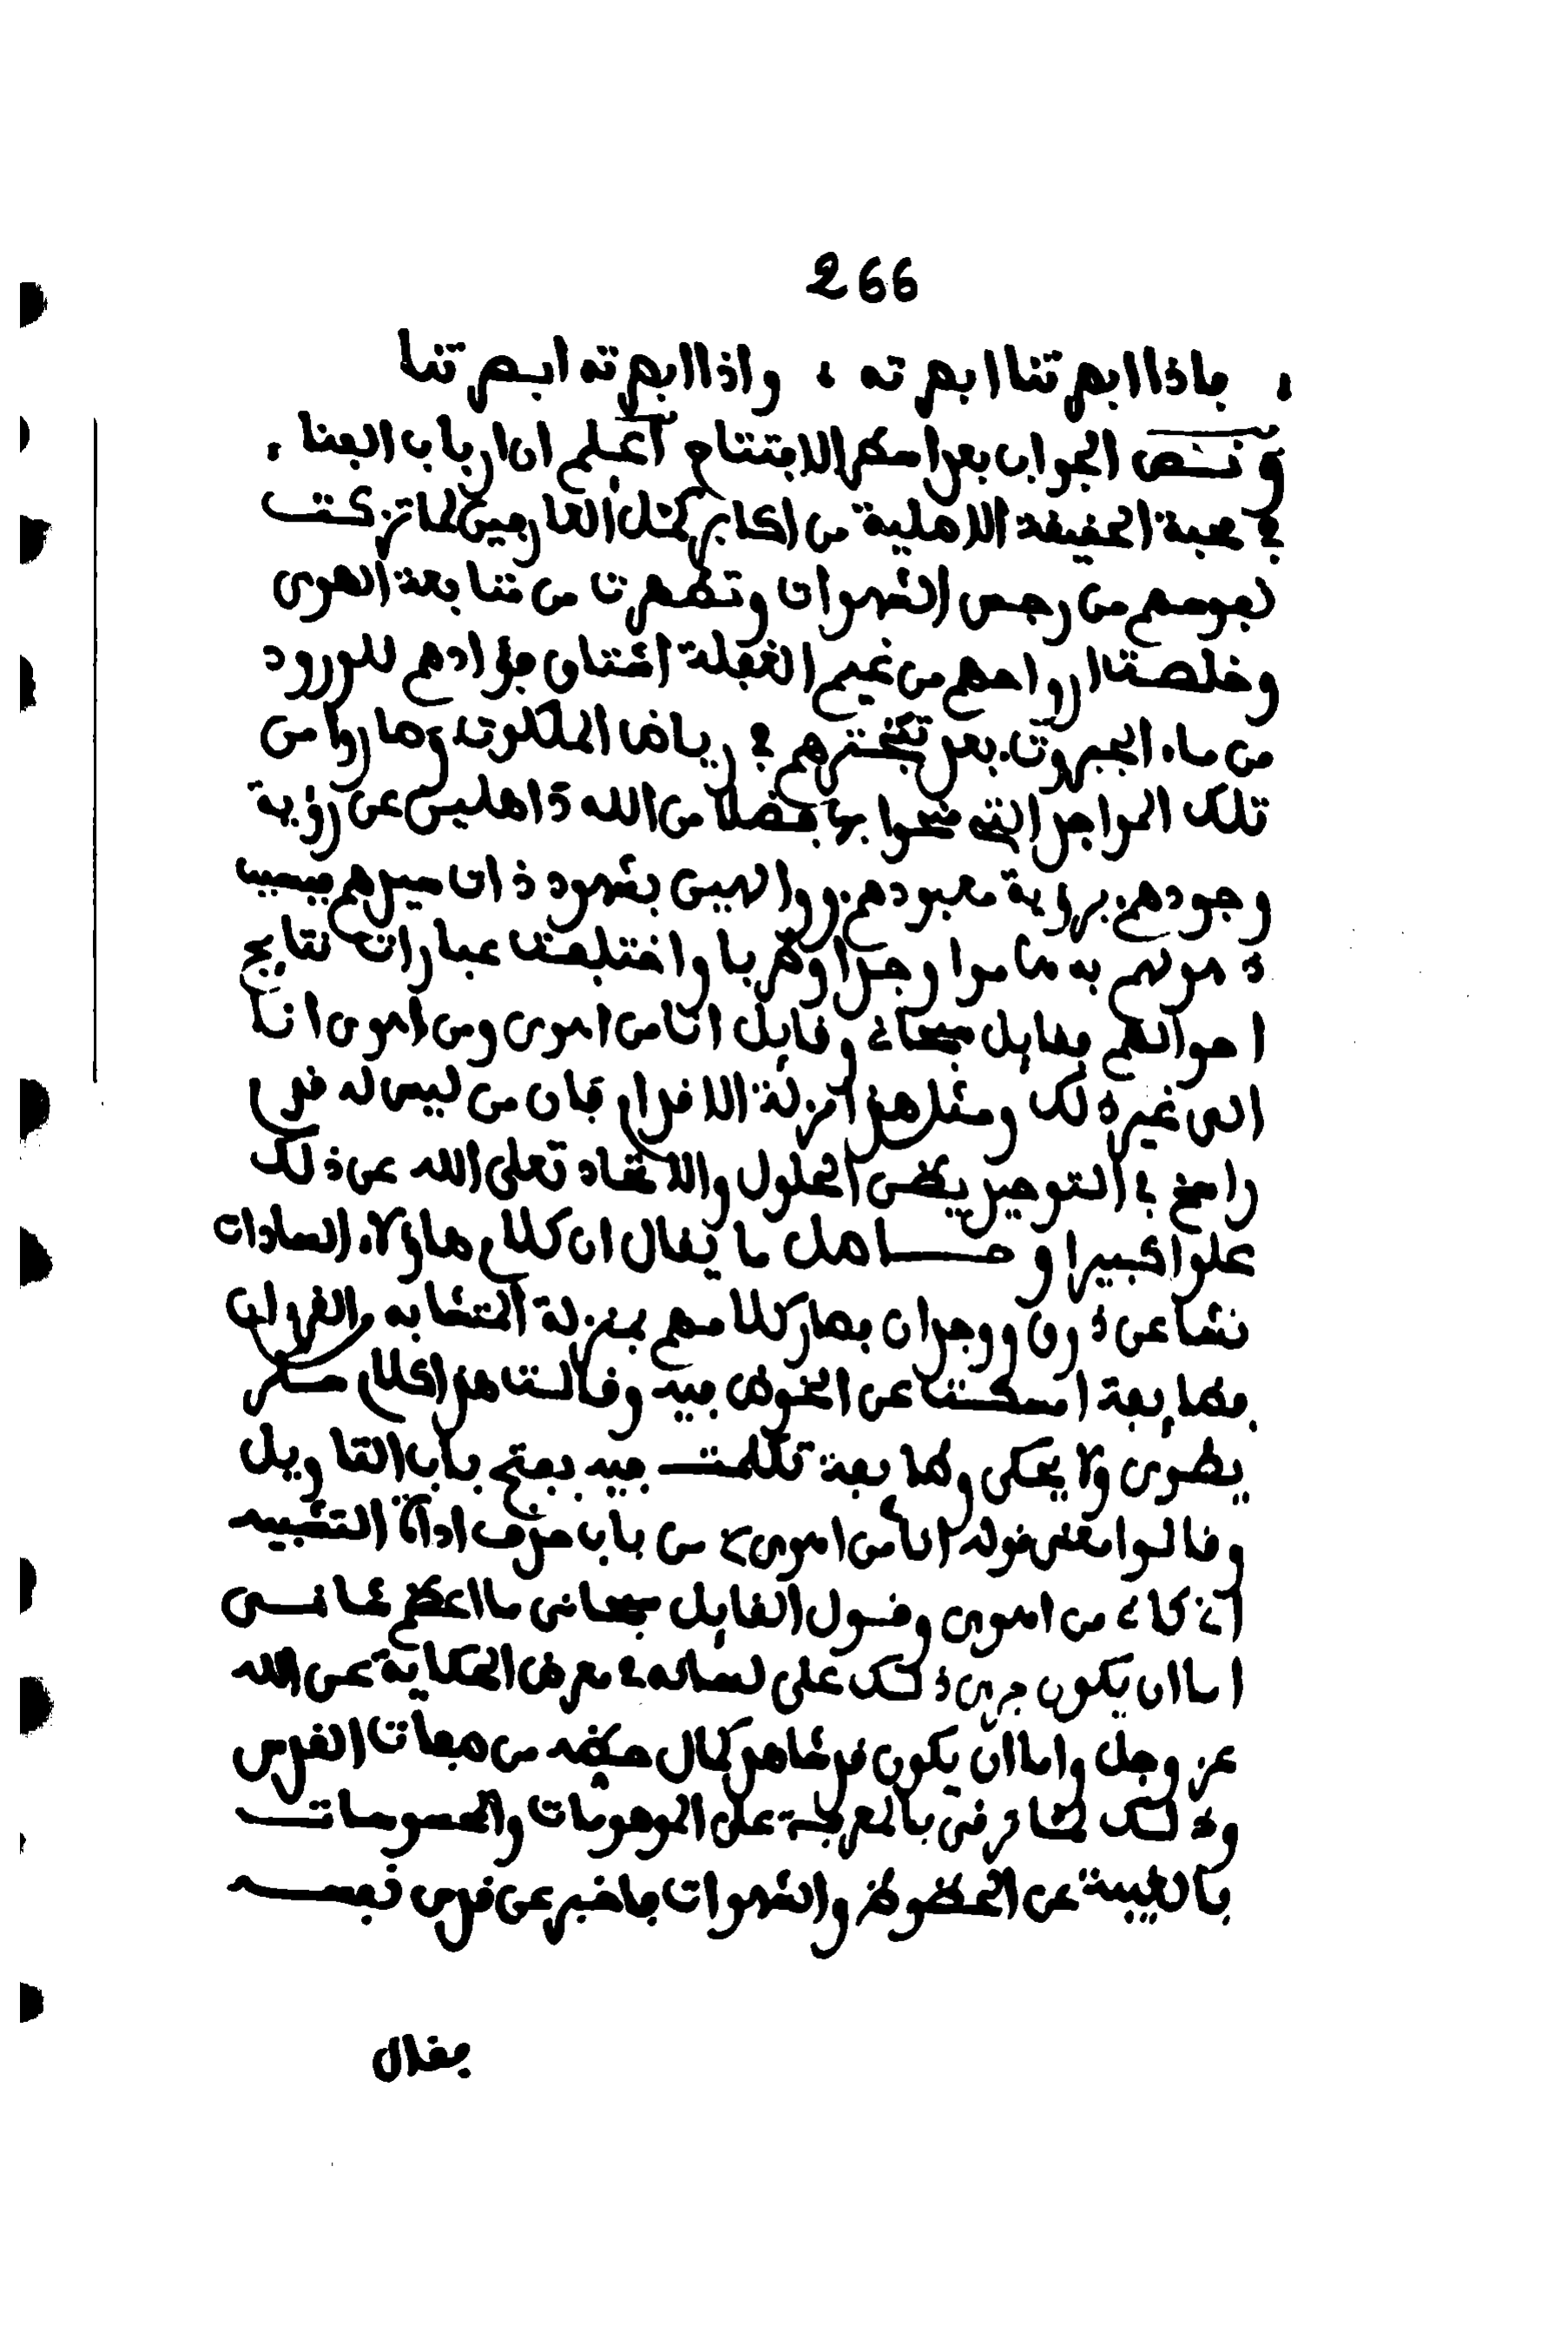 266
فاذا ابصرتنا ابصرته ، واذا ابصرته ابصرتنا
ونص الجواب بعد اسطر الافتتاح اعلم ان ارباب الفنا
في محبة الحقيقة الالاهية من اكابر كمل العارفين لما تزكت
نفوسهم من رجس الشهوات وتطهرت من متابعة الهوى
وخلصت ارواحهم من غيم الغفلة اشتاق فؤادهم للورود
من ماء الجبروت بعد تبخترهم في رياض الملكوت وصاروا من
تلك المواجد التي منحوا بها فضلا من الله ذاهلين عن رؤية
وجودهم برؤية معبودهم ووالهين بشهود ذات سيدهم فبسبب
ذهولهم به هاموا وجدا وطربا واختلفت عبارات نتايج
احوالهم فقايل سبحاني وقايل انا من اهوى ومن اهوى انا
الى غير ذلك ومثل هذا مزلة الاقدام فان من ليس له قدم
راسخ في التوحيد يظن الحلول والاتحاد تعلى الله عن ذلك
علوا كبيرا وحاصل ما يقال ان كلام هاؤلاء السادات
نشا عن ذوق ووجدان فصار كلامهم بمنزلة المتشابه في القرءان
فطايفة امسكت عن الخوض فيه وقالت هذا كلام سكر
يطوى ولا يحكى وطايفة تكلمت فيه بفتح باب التاويل
وقالوا معنى قوله انا من اهوى من باب حذف اداة التشبيه
اي كاني من اهوى وقول القايل سبحاني ما اعظم شاني
اما ان يكون جرى ذلك على لسانه في معرض الحكاية عن الله
عز وجل واما ان يكون قد شاهد كمال حظه من صفات القدس
وذلك لما ترقى بالمعرفة على الموهومات والمحسوسات
بالغيبة عن الحظوظ والشهوات فاخبر عن قدس نفسه
فقال